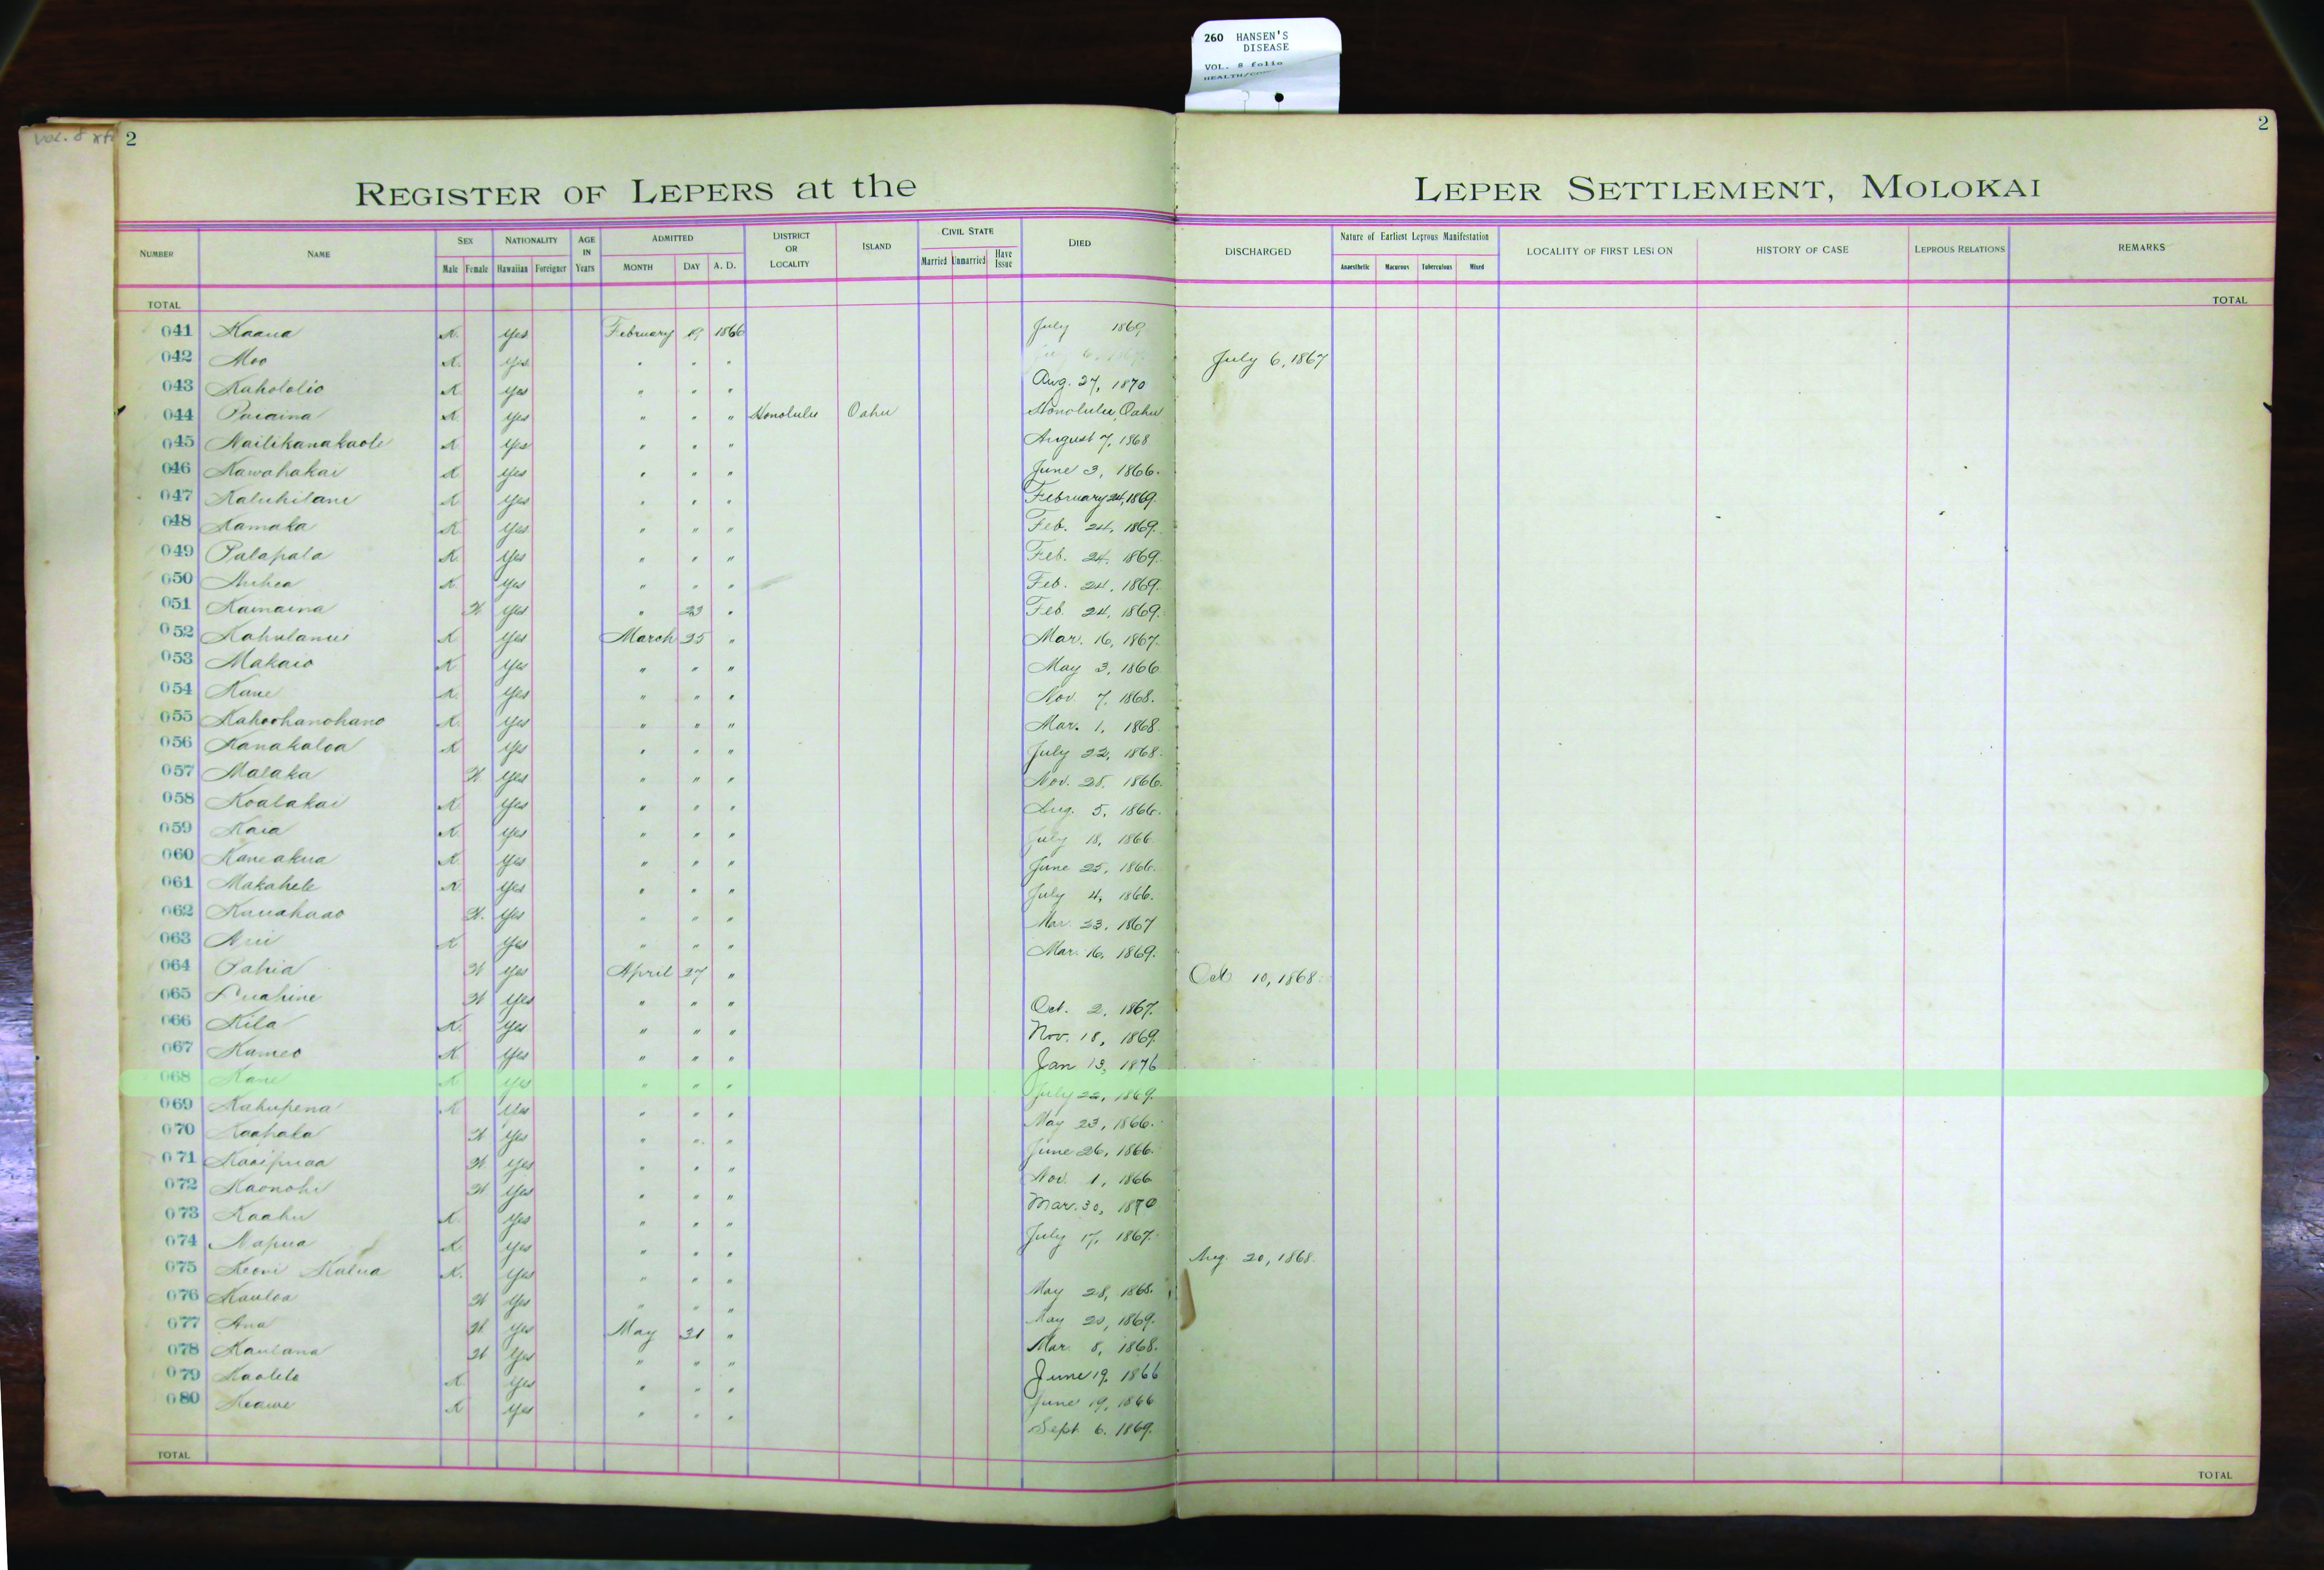 260 HANSEN'S
DISEASE
VOL. 8 folio
Vol. 8
2
2
REGISTER OF LEPERS at the LEPER SETTLEMENT, MOLOKAI
NUMBER NAME SEX NATIONALITY AGE IN Years ADMITTED DISTRICT OR LOCALITY ISLAND CIVIL STATE DIED DISCHARGED Nature of Earliest Leprous Manifestation LOCALITY OF FIRST LESION HISTORY OF CASE LEPROUS RELATIONS REMARKS
Male Female Hawaiian Foreigner MONTH DAY A. D. Married Unmarried Have Issue Anaesthetic Macurous Tuberculous Mixed
TOTAL TOTAL
041 Kaaua K. Yes February 19 1866 July 1869
042 Moo K. Yes " " " July 6, 1867
043 Kahololio K. Yes " " " Aug. 27, 1870
044 Paiaina K. Yes " " " Honolulu Oahu Honolulu, Oahu
045 Nailikanakaole K Yes " " " August 7, 1868
046 Kawahakai K Yes " " " June 3, 1866.
047 Kaluhilani K Yes " " " February 24, 1869.
048 Kamaka K Yes " " " Feb. 24, 1869.
049 Palapala K. Yes " " " Feb. 24, 1869.
050 Auhea K. Yes " " " Feb. 24, 1869.
051 Kamaina W. Yes " 23 " Feb. 24, 1869.
052 Kahulanui K Yes March 25 " Mar. 16, 1867.
053 Makaio K Yes " " " May 3, 1866
054 Kane K. Yes " " " Nov. 7, 1868.
055 Kahoohanohano K. Yes " " " Mar. 1, 1868.
056 Kanakaloa K Yes " " " July 22, 1868.
057 Malaka W Yes " " " Nov. 28, 1866.
058 Koalakai K Yes " " " Aug. 5, 1866.
059 Kaia K. Yes " " " July 18, 1866.
060 Kaneakua K. Yes " " " June 25, 1866.
061 Makahele K. Yes " " " July 4, 1866.
062 Kauahaao W. Yes " " " Mar. 23, 1867
063 K Yes " " " Mar. 16, 1869.
064 Pahia W Yes April 27 " Oct 10, 1868.
065 Luahine W Yes " " " Oct. 2, 1867.
066 Kila K. Yes " " " Nov. 18, 1869.
067 Kameo K Yes " " " Jan 13, 1876
068 Kane K Yes " " " July 22, 1869.
069 Kahupena K Yes " " " May 23, 1866.
070 Kaahala W Yes " " " June 26, 1866.
071 Kaaipuaa W. Yes " " " Nov. 1, 1866
072 Kaonohi W Yes " " " Mar. 30, 1870
073 Kaahu K. Yes " " " July 17, 1867.
074 Napua K Yes " " " Aug. 20, 1868.
075 Keoni Kalua K. Yes " " " May 28, 1868.
076 Kauloa W Yes " " " May 20, 1869.
077 Ana W. Yes May 31 " Mar. 8, 1868.
078 Kaulana W Yes " " " June 19, 1866
079 Kaolelo K Yes " " " June 19, 1866
080 Keawe K Yes " " " Sept 6, 1869.
TOTAL TOTAL